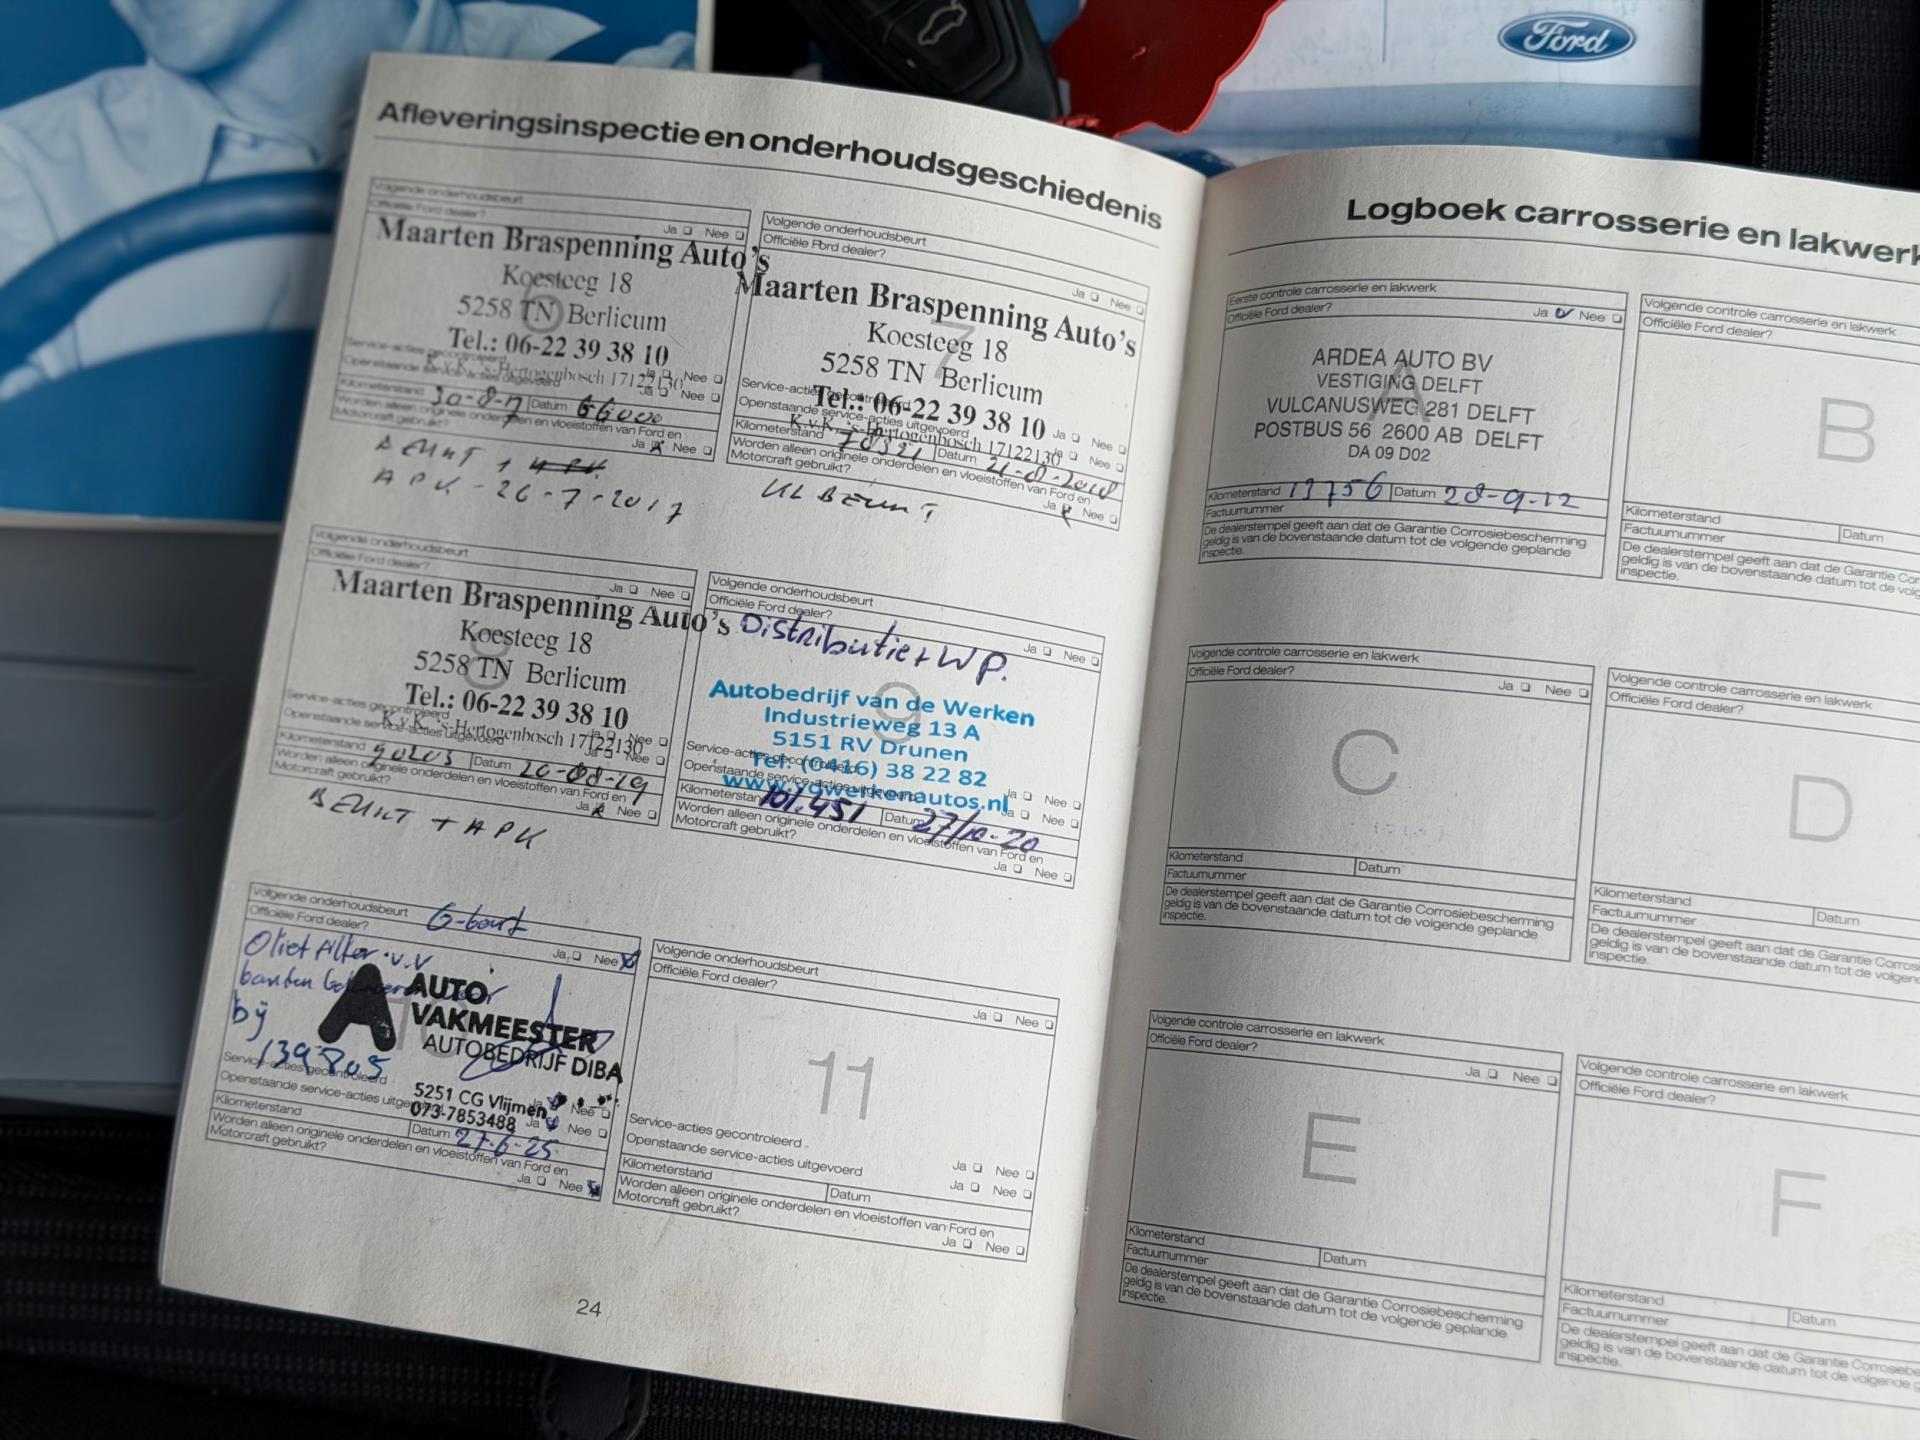 Ford
Afleveringsinspectie en onderhoudsgeschiedenis
Volgende onderhoudsbeurt
Officiële Ford dealer?
Ja Nee
Maarten Braspenning Auto's
Koesteeg 18
5258 TN Berlicum
Tel.: 06-22 39 38 10
K.v.K. 's-Hertogenbosch 17122130
6
Service-acties gecontroleerd Ja Nee
Openstaande service-acties uitgevoerd Ja Nee
Kilometerstand 30-8-17 Datum 66000
Worden alleen originele onderdelen en vloeistoffen van Ford en
Motorcraft gebruikt? Ja Nee
BEURT +
APK - 26-7-2017
Volgende onderhoudsbeurt
Officiële Ford dealer?
Ja Nee
Maarten Braspenning Auto's
Koesteeg 18
5258 TN Berlicum
Tel.: 06-22 39 38 10
K.v.K. 's-Hertogenbosch 17122130
7
Service-acties gecontroleerd Ja Nee
Openstaande service-acties uitgevoerd Ja Nee
Kilometerstand Datum 21-8-2018
Worden alleen originele onderdelen en vloeistoffen van Ford en
Motorcraft gebruikt? Ja Nee
BEURT
Volgende onderhoudsbeurt
Officiële Ford dealer?
Ja Nee
Maarten Braspenning Auto's
Koesteeg 18
5258 TN Berlicum
Tel.: 06-22 39 38 10
K.v.K. 's-Hertogenbosch 17122130
8
Service-acties gecontroleerd Ja Nee
Openstaande service-acties uitgevoerd Ja Nee
Kilometerstand 90203 Datum 20-08-19
Worden alleen originele onderdelen en vloeistoffen van Ford en
Motorcraft gebruikt? Ja Nee
BEURT + APK
Volgende onderhoudsbeurt
Officiële Ford dealer?
Ja Nee
Distributie + WP.
Autobedrijf van de Werken
Industrieweg 13 A
5151 RV Drunen
Tel: (0416) 38 22 82
www.vdwerkenautos.nl
9
Service-acties gecontroleerd Ja Nee
Openstaande service-acties uitgevoerd Ja Nee
Kilometerstand 101.451 Datum 27/10-20
Worden alleen originele onderdelen en vloeistoffen van Ford en
Motorcraft gebruikt?
Ja Nee
Volgende onderhoudsbeurt G-beurt
Officiële Ford dealer?
Ja Nee
Olie+filter
banden
bij
139805
10
AUTO
VAKMEESTER
AUTOBEDRIJF DIBA
5251 CG Vlijmen
073-7853488
Service-acties gecontroleerd Ja Nee
Openstaande service-acties uitgevoerd Ja Nee
Kilometerstand Datum 27-6-25
Worden alleen originele onderdelen en vloeistoffen van Ford en
Motorcraft gebruikt?
Ja Nee
Volgende onderhoudsbeurt
Officiële Ford dealer?
Ja Nee
11
Service-acties gecontroleerd Ja Nee
Openstaande service-acties uitgevoerd Ja Nee
Kilometerstand Datum
Worden alleen originele onderdelen en vloeistoffen van Ford en
Motorcraft gebruikt?
Ja Nee
24
Logboek carrosserie en lakwerk
Eerste controle carrosserie en lakwerk
Officiële Ford dealer?
Ja Nee
A
ARDEA AUTO BV
VESTIGING DELFT
VULCANUSWEG 281 DELFT
POSTBUS 56 2600 AB DELFT
DA 09 D02
Kilometerstand 13756 Datum 28-9-12
Factuurnummer
De dealerstempel geeft aan dat de Garantie Corrosiebescherming
geldig is van de bovenstaande datum tot de volgende geplande
inspectie.
Volgende controle carrosserie en lakwerk
Officiële Ford dealer?
B
Kilometerstand
Factuurnummer Datum
De dealerstempel geeft aan dat de Garantie
geldig is van de bovenstaande datum tot de
inspectie.
Volgende controle carrosserie en lakwerk
Officiële Ford dealer?
Ja Nee
C
Kilometerstand Datum
Factuurnummer
De dealerstempel geeft aan dat de Garantie Corrosiebescherming
geldig is van de bovenstaande datum tot de volgende geplande
inspectie.
Volgende controle carrosserie en lakwerk
Officiële Ford dealer?
D
Kilometerstand Datum
Factuurnummer
De dealerstempel geeft aan dat de Garantie
geldig is van de bovenstaande datum tot de
inspectie.
Volgende controle carrosserie en lakwerk
Officiële Ford dealer?
Ja Nee
E
Kilometerstand Datum
Factuurnummer
De dealerstempel geeft aan dat de Garantie Corrosiebescherming
geldig is van de bovenstaande datum tot de volgende geplande
inspectie.
Volgende controle carrosserie en lakwerk
Officiële Ford dealer?
F
Kilometerstand
Factuurnummer Datum
De dealerstempel geeft aan dat de Garantie
geldig is van de bovenstaande datum tot de
inspectie.